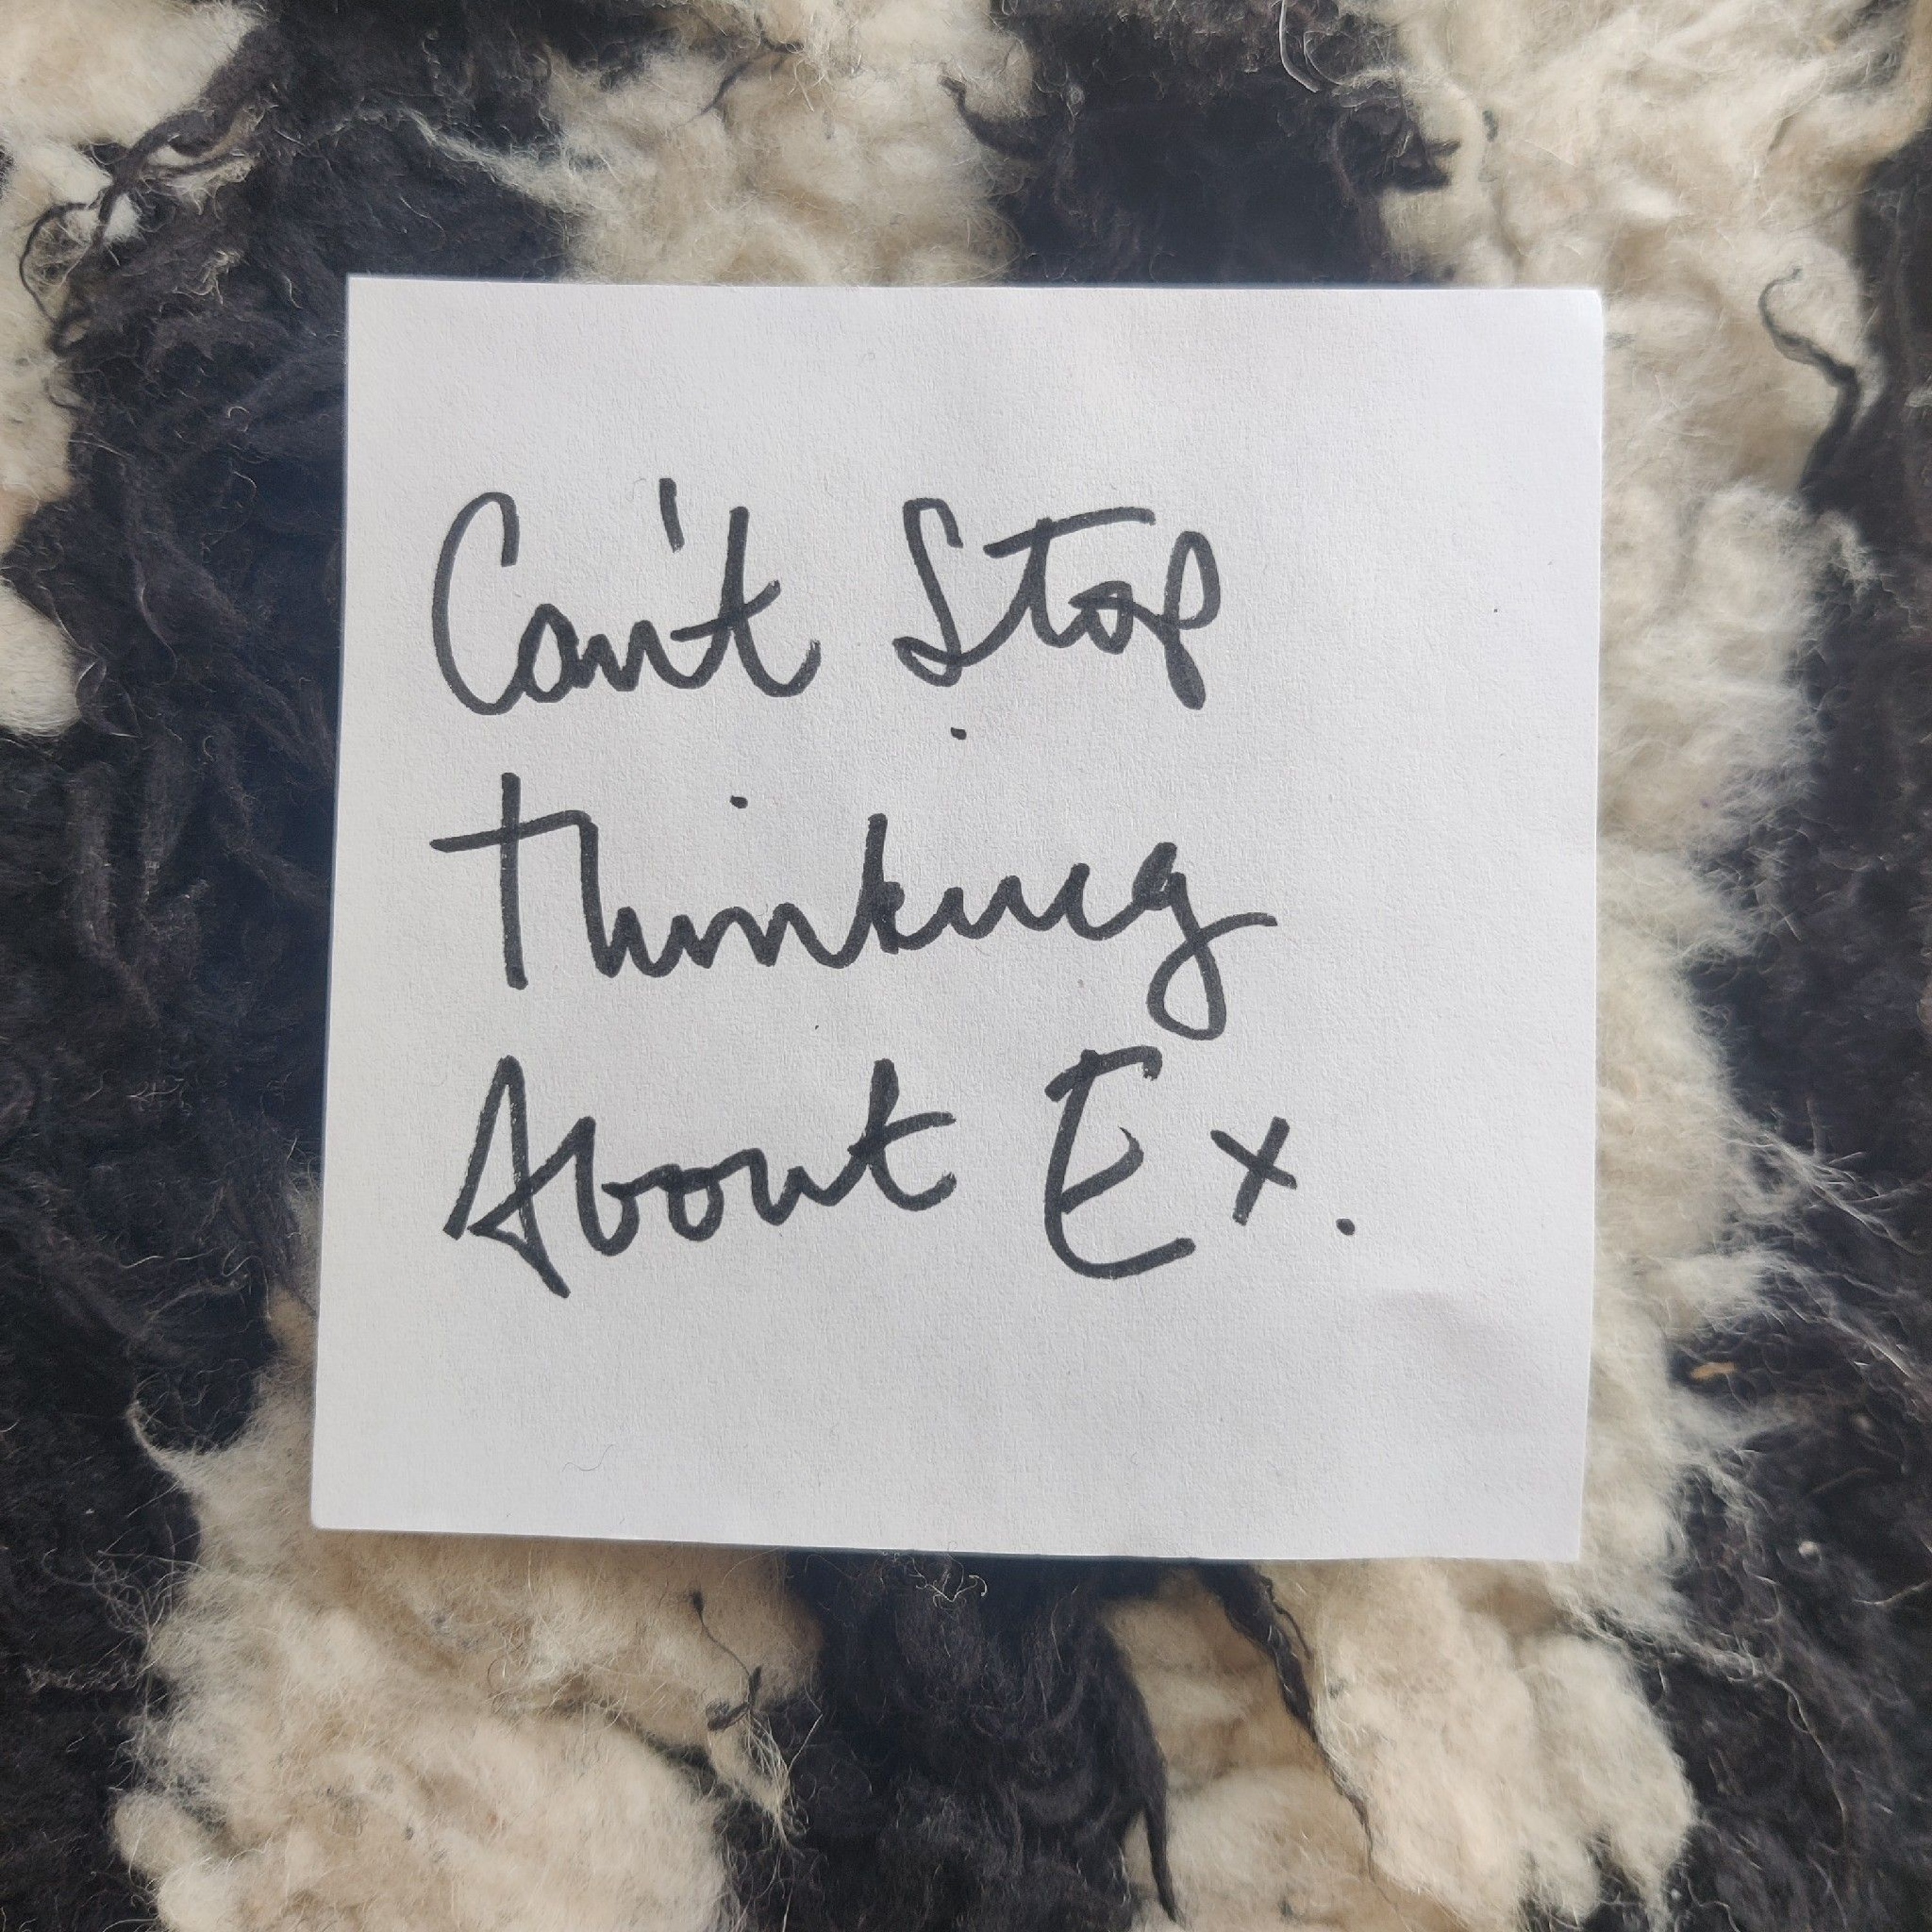 Can't Stop
Thinking
About Ex.